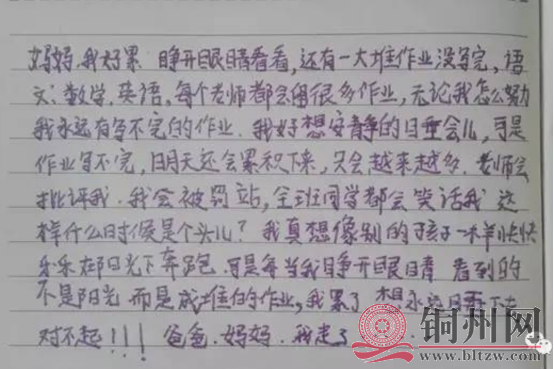 妈妈.我好累 睁开眼睛看看,还有一大堆作业没写完,语
文、数学.英语,每个老师都会留很多作业,无论我怎么努力
我永远有写不完的作业.我好想安静的睡会儿,可是
作业写不完,明天还会累积下来,只会越来越多.老师会
批评我.我会被罚站,全班同学都会笑话我 这
样什么时候是个头儿?我真想像别的孩子一样快快
乐乐在阳光下奔跑.可是每当我睁开眼睛 看到的
不是阳光 而是成堆的作业,我累了 想永远睡下去
对不起!!! 爸爸.妈妈.我走了
铜州网
www.bltzw.com